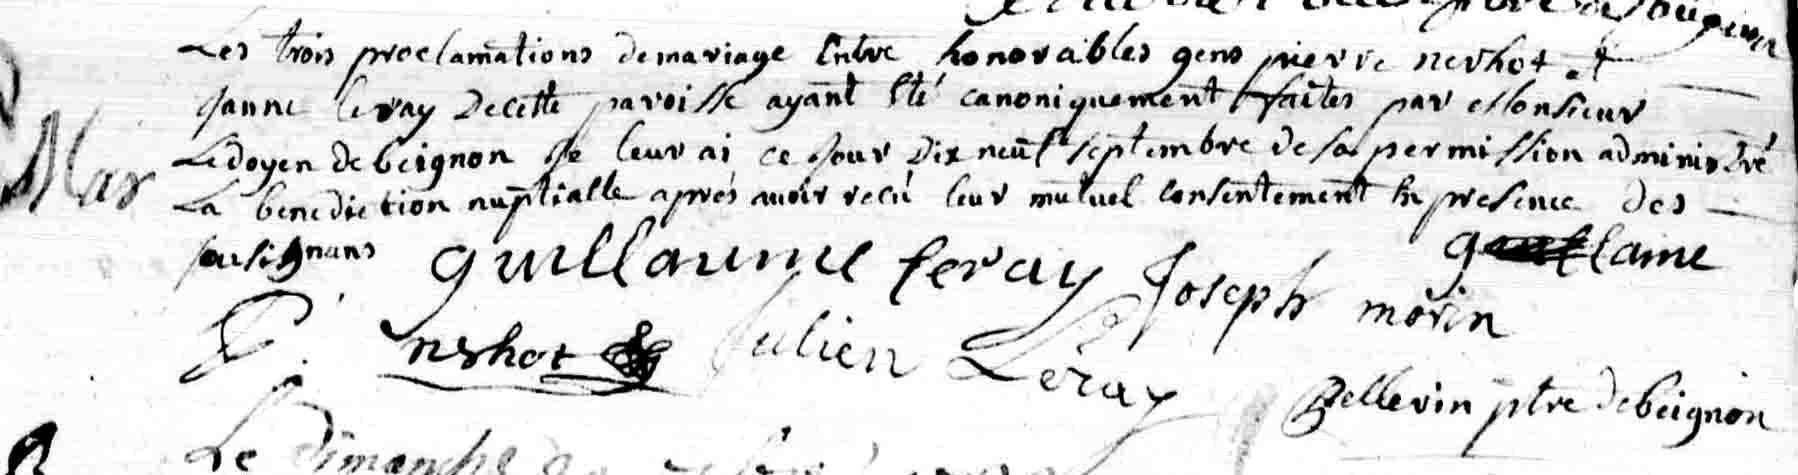 Les trois proclamations de mariage Entre honorables gens pierre nerhot et
Janne leray De cette paroisse ayant Eté canoniquement faites par Monsieur
Mar Ledoyen de beignon Je leur ai ce Jour Dix neuf septembre de sa permission administré
La benediction nuptialle aprés avoir recu leur mutuel consentement En presence des
sousignans guillaume leray Joseph morin
P. nerhot Julien Leray
Bellevin ptre de beignon
Le Dimanche